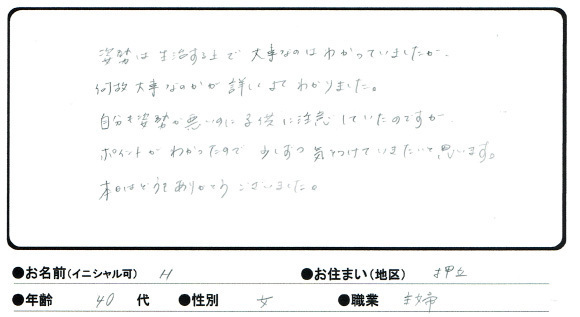 姿勢は生活する上で大事なのはわかっていましたが、
何故大事なのかが詳しくよくわかりました。
自分も姿勢が悪いのに子供に注意していたのですが、
ポイントがわかったので少しずつ気をつけていきたいと思います。
本日はどうもありがとうございました。
●お名前(イニシャル可) H ●お住まい(地区) 押立
●年齢 40代 ●性別 女 ●職業 主婦